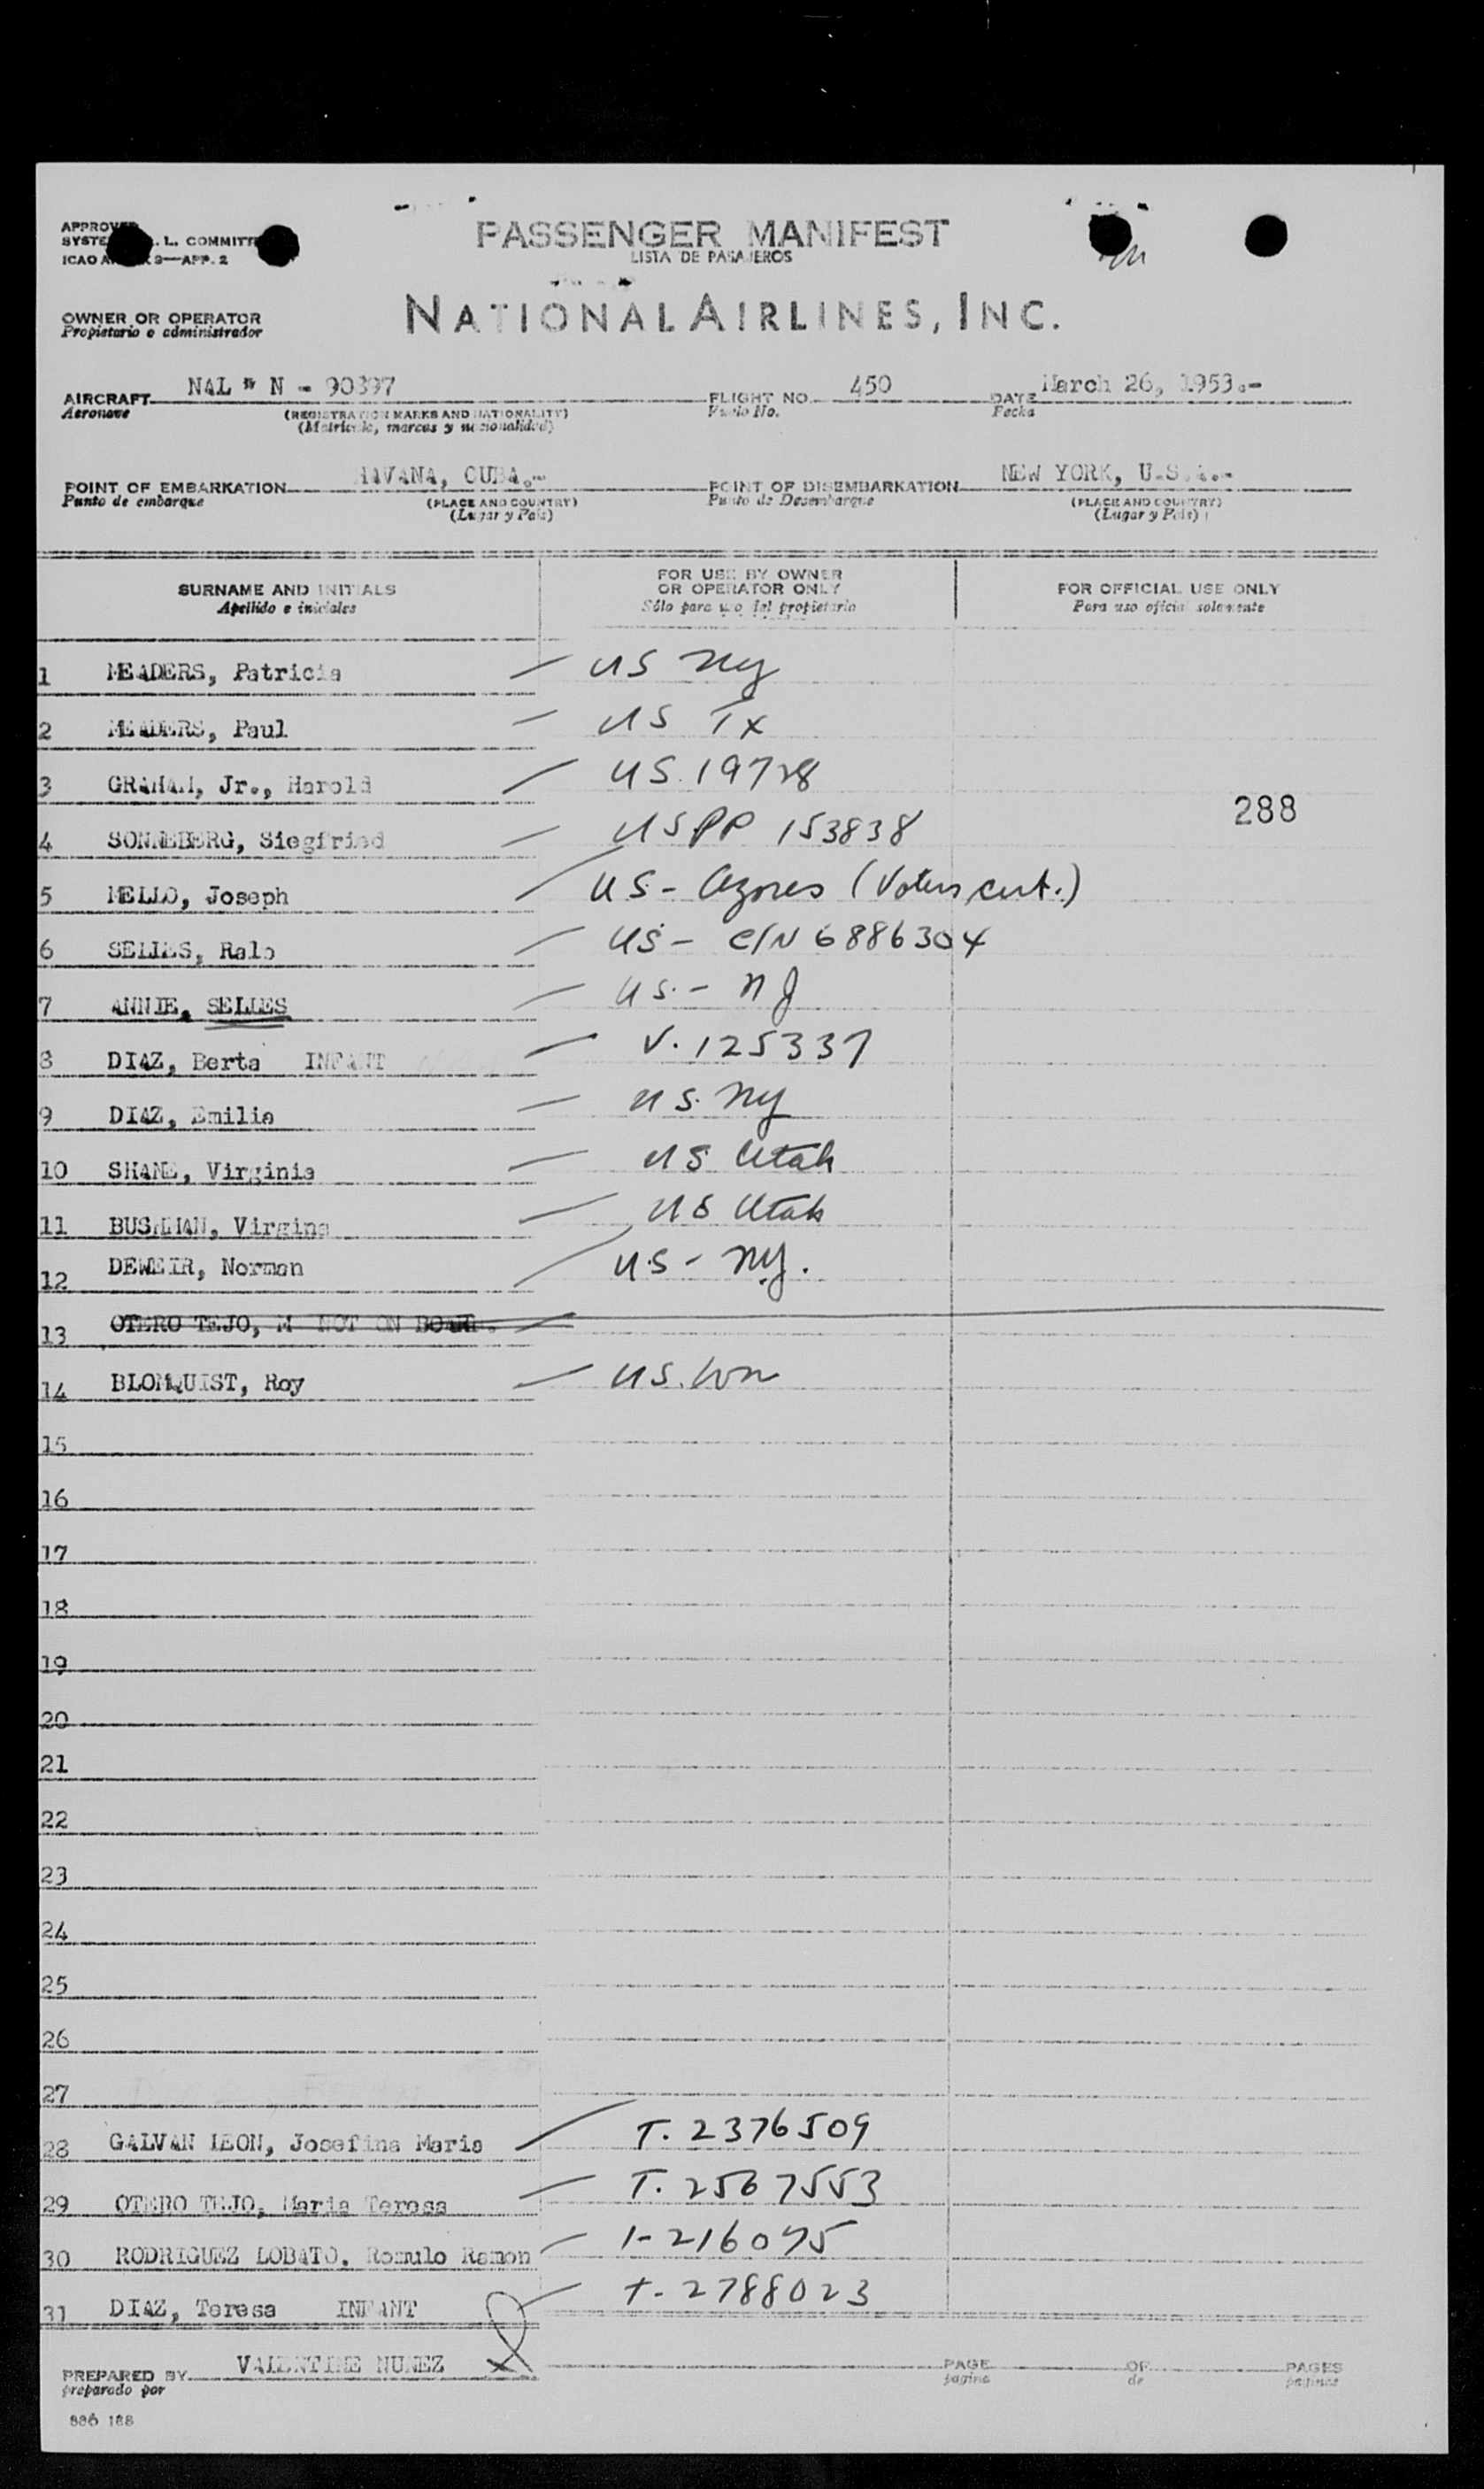 PASSENGER MANIFEST
LISTA DE PASAJEROS
ICAO 9—APP. 2
OWNER OR OPERATOR
Propietario o administrador
NATIONAL AIRLINES, INC.
AIRCRAFT NAL " N - 90397 FLIGHT NO. 450 DATE March 26, 1953.-
Aeronave (REGISTRATION MARKS AND NATIONALITY) Vuelo No. Fecha
(Matricula, marcas y nacionalidad)
POINT OF EMBARKATION HAVANA, CUBA.- POINT OF DISEMBARKATION NEW YORK, U.S.A.-
Punto de embarque (PLACE AND COUNTRY) Punto de Desembarque (PLACE AND COUNTRY)
(Lugar y País) (Lugar y País)
SURNAME AND INITIALS FOR USE BY OWNER OR OPERATOR ONLY FOR OFFICIAL USE ONLY
Apellido e iniciales Sólo para uso del propietario Para uso oficial solamente
1 MEADERS, Patricia — US NY
2 MEADERS, Paul — US Tx
3 GRAHAM, Jr., Harold — US. 19728
288
4 SONNEBERG, Siegfried — US PP 153838
5 MELLO, Joseph — US - Azores (Voters cert.)
6 SELLES, Ralo — US - C/N 6886304
7 ANNIE, SELLES — US. - NJ
8 DIAZ, Berta INFANT — V. 125337
9 DIAZ, Emilia — US. NY
10 SHANE, Virginia — US Utah
11 BUSHMAN, Virgina — US Utah
12 DEWEIR, Norman — US - NY.
13 OTERO TEJO, M NOT ON BOARD.
14 BLOMQUIST, Roy — US.
15
16
17
18
19
20
21
22
23
24
25
26
27
28 GALVAN LEON, Josefina Maria — T. 2376509
29 OTERO TEJO, Maria Teresa — T. 2567553
30 RODRIGUEZ LOBATO, Romulo Ramon — 1-216075
31 DIAZ, Teresa INFANT — T- 2788023
PREPARED BY VALENTINE NUNEZ PAGE OF PAGES
preparado por pagina de paginas
886 188